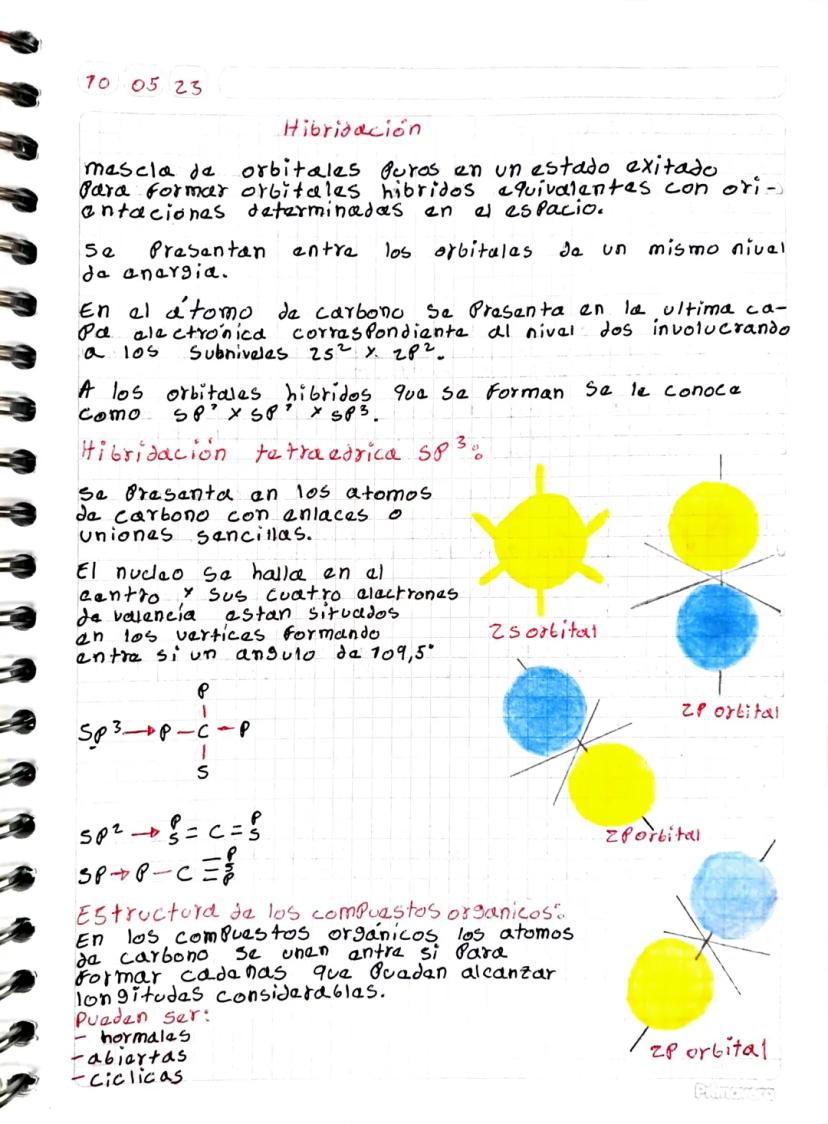 10 05 23
Hibridación
mescla de orbitales puros en un estado exitado
para formar orbitales hibridos equivalentes con ori-
entaciones determinadas en el espacio.
Se presentan entre los orbitales de un mismo nivel
de energia.
En el átomo de carbono se presenta en la ultima ca-
pa electrónica correspondiente al nivel dos involucrando
a los subniveles 2s² y 2p².
A los orbitales hibridos que se forman se le conoce
como sp' y sp² y sp³.
Hibridación tetraedrica sp³:
se presenta en los atomos
de carbono con enlaces o
uniones sencillas.
El nucleo se halla en el
centro y sus cuatro electrones
de valencia estan situados
en los vertices formando
entre si un angulo de 109,5°
2s orbital
2p orbital
2p orbital
2p orbital
P
Sp³→P-C-P
S
sp²→ P = C = P
S S
sp→P-C≡P
Estructura de los compuestos organicos:
En los compuestos orgánicos los atomos
de carbono se unen entre si para
formar cadenas que puedan alcanzar
longitudes considerables.
Pueden ser:
- normales
- abiertas
- ciclicas
Primavera